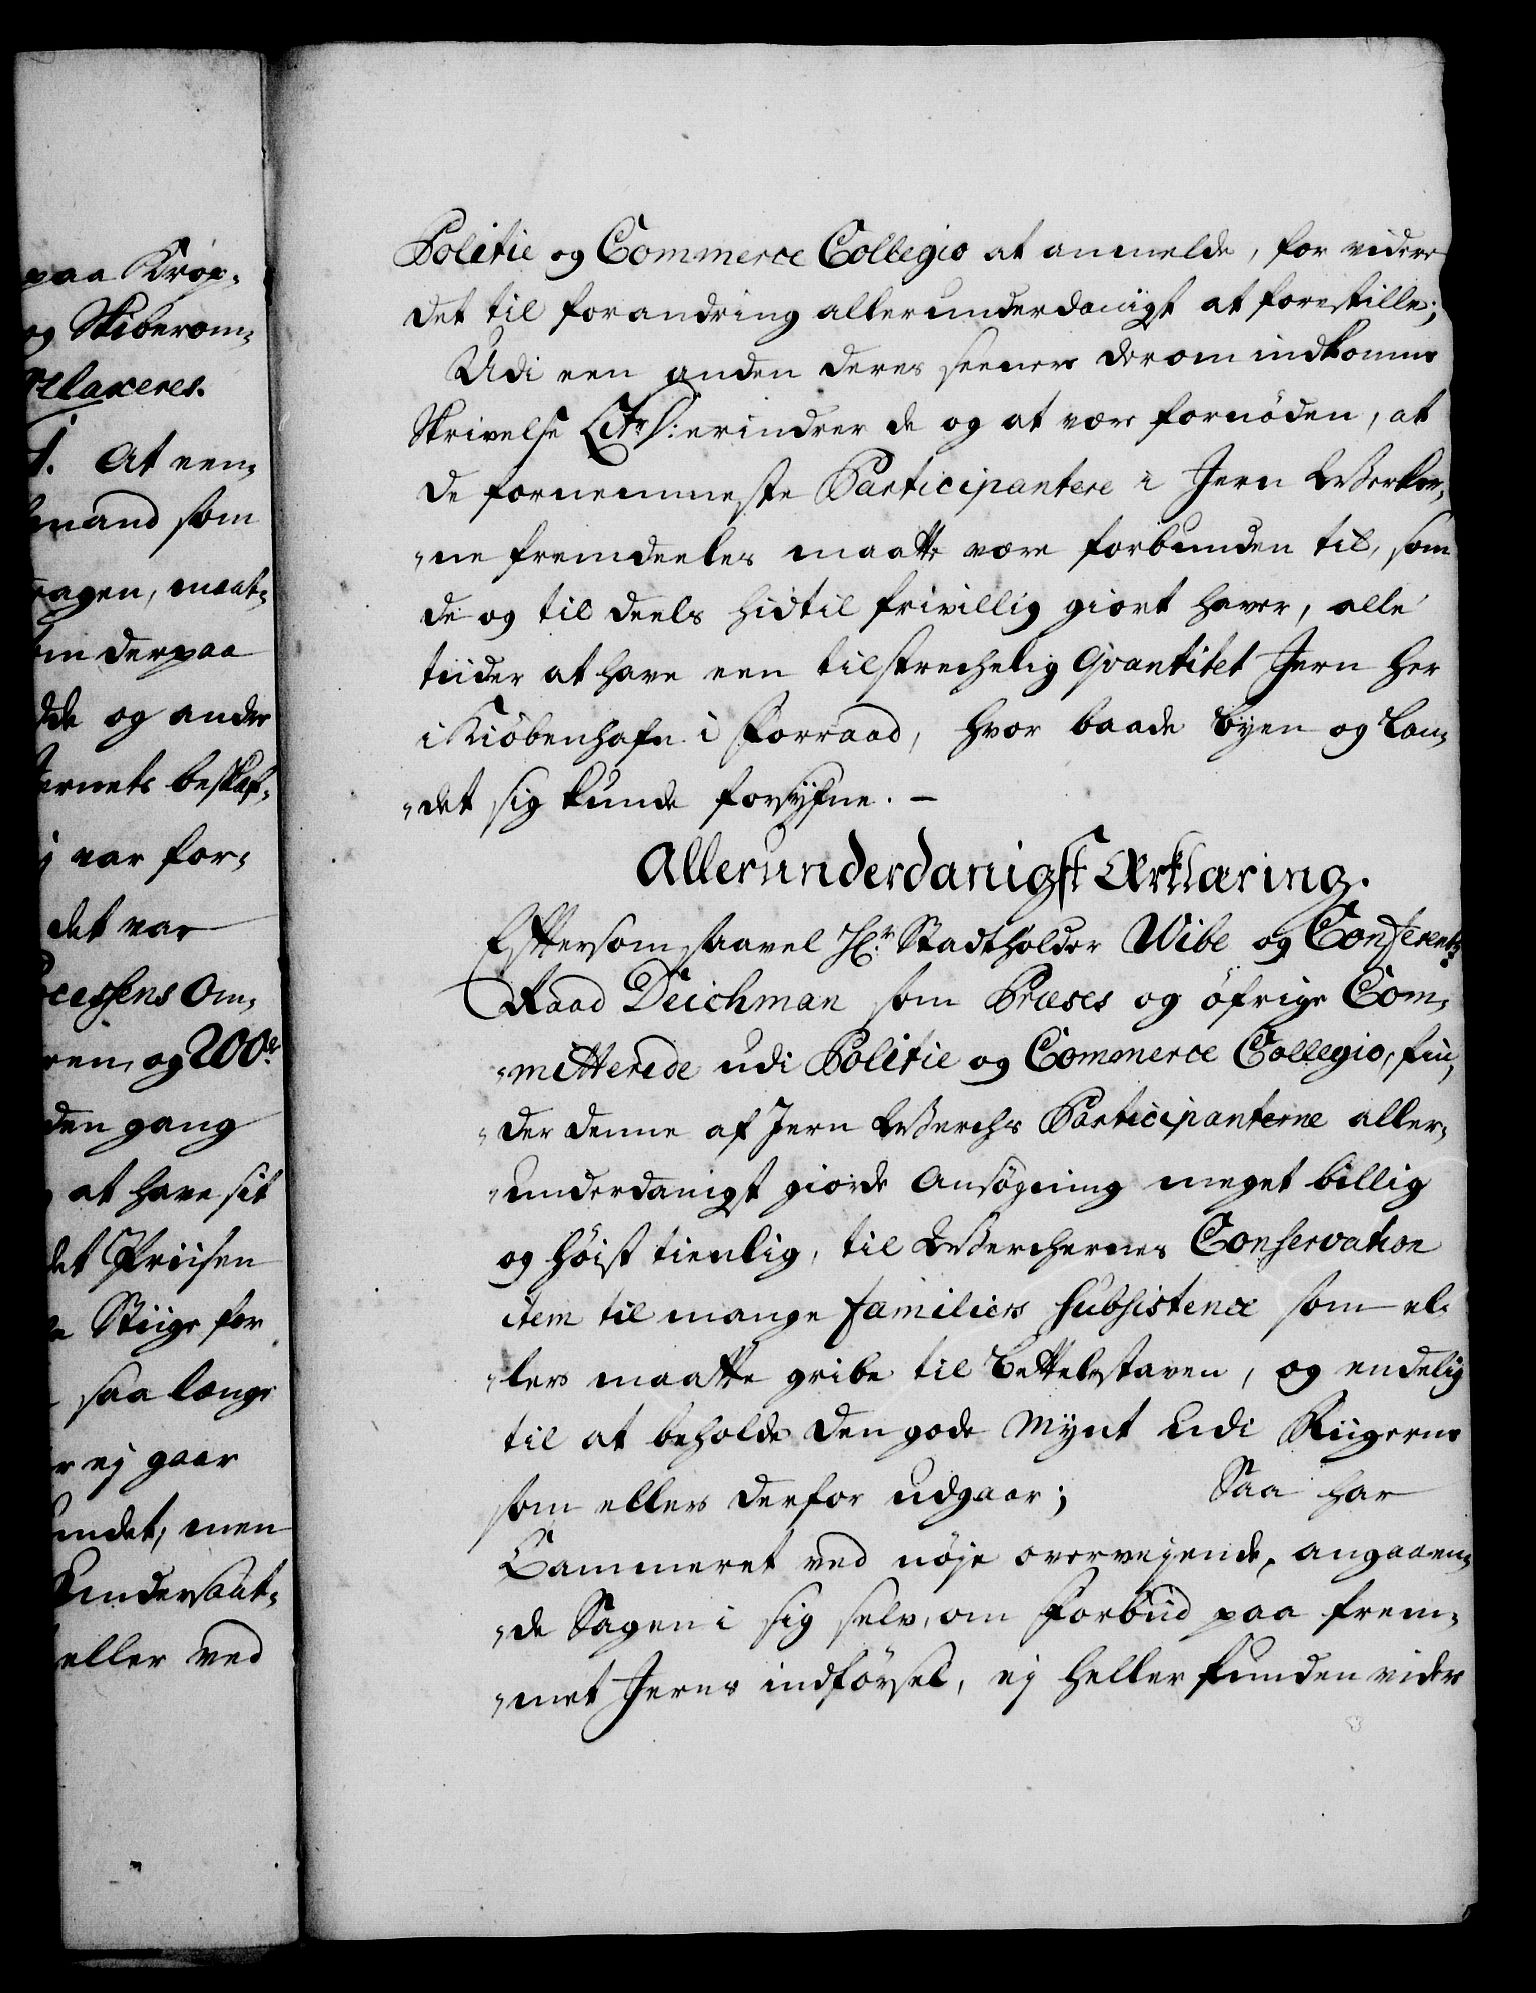 paa Krop-
og Skiberom-
Relaxeres.
1. At een-
mand som
sagen, maat-
om derpaa
dde og andre
Jernets beskaf-
j var for-
det var
ocessens Om-
ren, og 200
den gang
at have sit
det Priisen
Stiige for
saa længe
r ej gaar
undet, men
Undersaat-
eller ved
Politie og Commerce Collegio at anmelde, for videre
det til forandring allerunderdanigst at forestille;
Udi een anden deres seenere derom indkomne
Skrivelse Litr: erindrer de og at være fornöden, at
de fornemmeste Participantere i Jern Werker-
"ne fremdeeles maatte være forbunden til, som
de og til deels hidtil frivillig giort haver, alle
tiider at have een tilstrechelig Qvantitet Jern her
i Kiöbenhafn i Forraad, hvor baade Byen og Lan-
"det sig kunde forsÿfne. -
Allerunderdanigst Ærklæring.
Eftersom saavel Hr. Stadtholder Wibe og Conferentz
Raad Deichman som Præses og öfrige Com-
"mitterede udi Politie og Commerce Collegio, fin-
"der denne af Jern Werchs Participanterne aller-
"underdanigst giorde Ansögning meget billig
og höist tienlig, til Werchernes Conservation
item til mange familiers Subsistence som el-
"lers maatte gribe til Bettelstaven, og endelig
til at beholde den gode Mÿnt udi Riigerne
som ellers derfor udgaar; Saa har
Cammeret ved nöje overvejende, angaaen-
"de Sagen i sig selv, om Forbud paa frem-
"met Jerns indförsel, ej heller funden videre